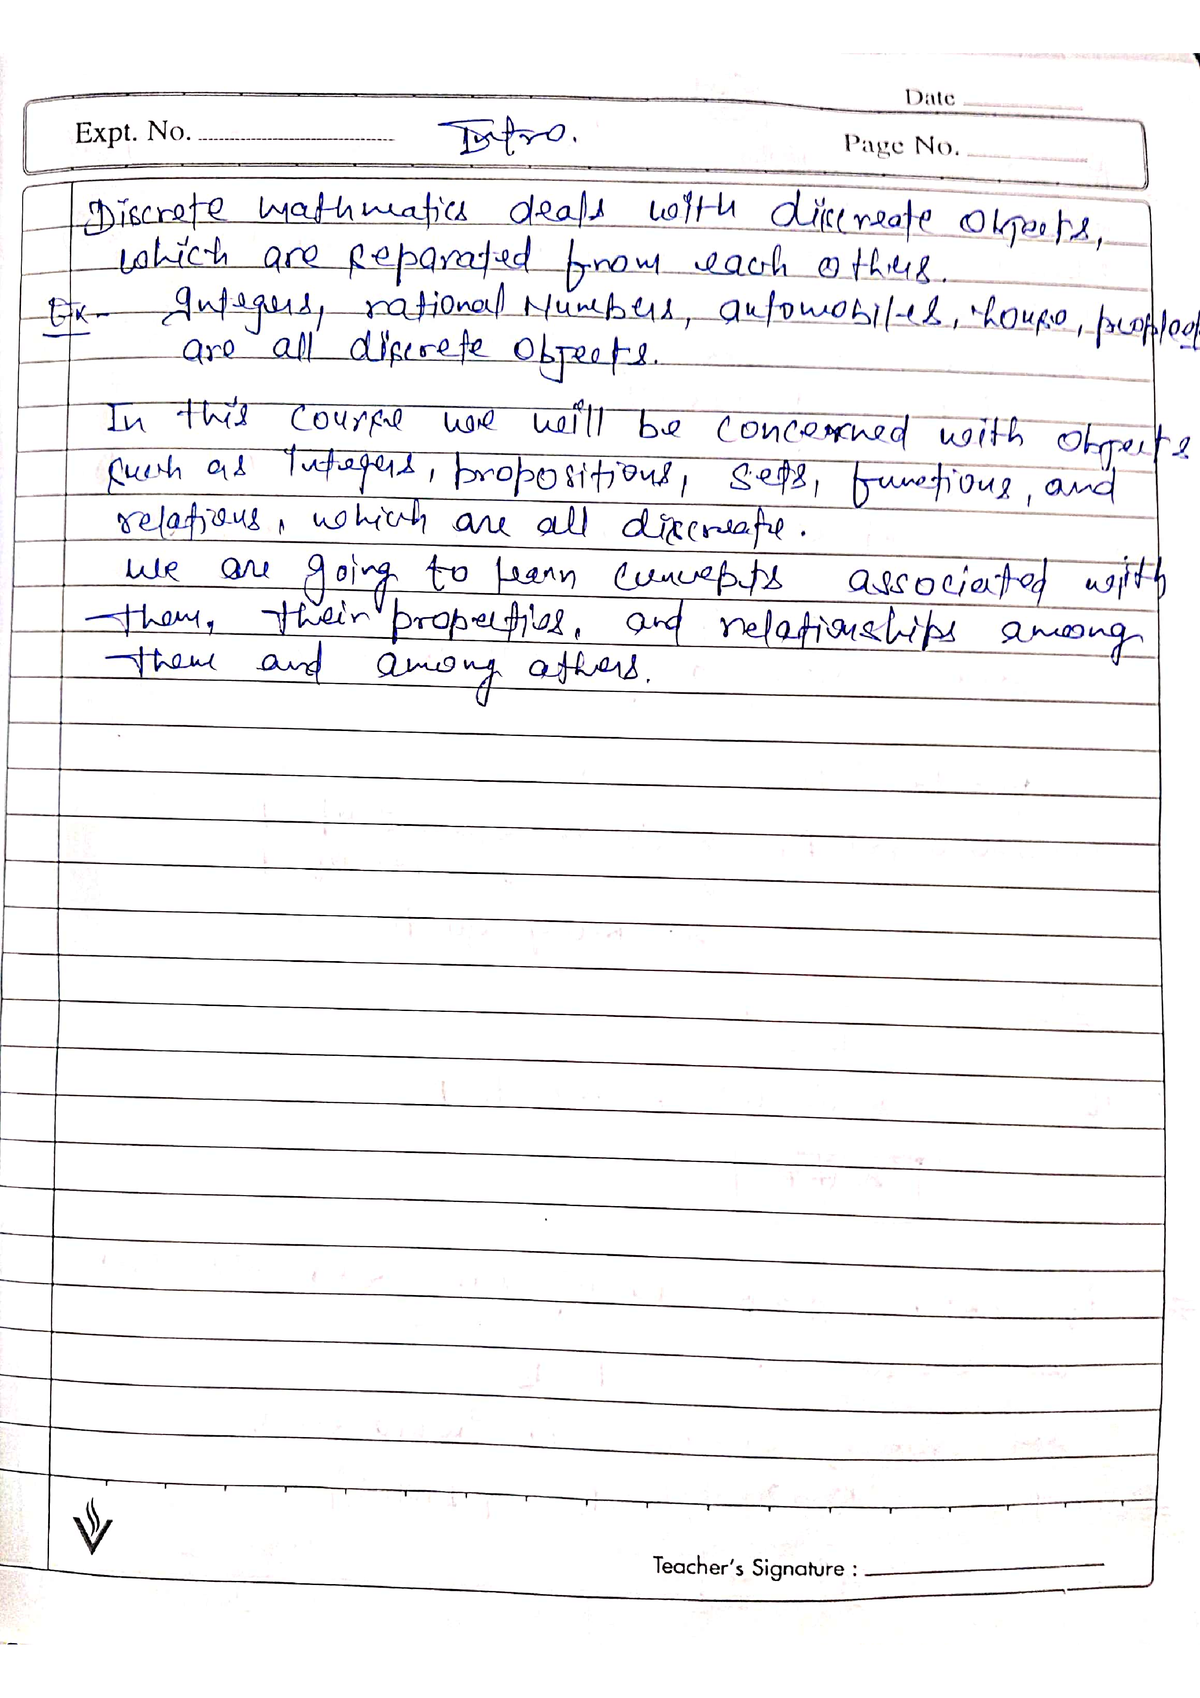 Date
Expt. No. Intro.
Page No.
Discrete mathmatics deals with discreate objects,
which are seperated from each others.
Ex- Integers, rational Numbers, automobiles, house, people
are all discrete objects.
In this course we will be concerned with objects
such as Integers, propositions, sets, functions, and
relations, which are all discreate.
we are going to learn concepts associated with
them, their properties, and relationships among
them and among others.
Teacher's Signature :